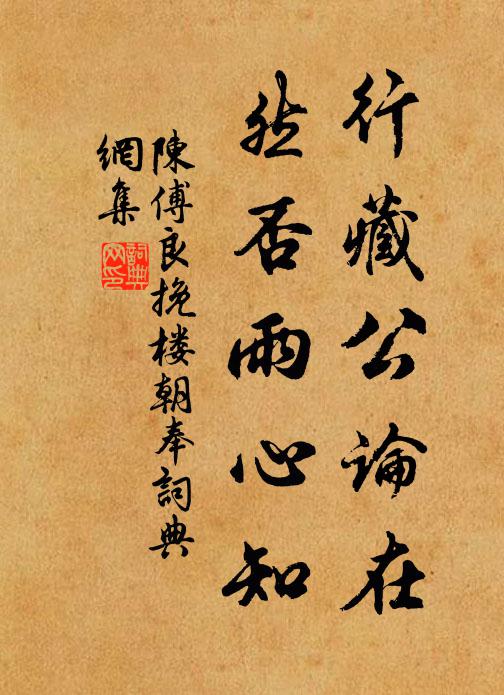 行藏公論在
然否兩心知
陳傅良挽楼朝奉詞典
網集
詞典
网印